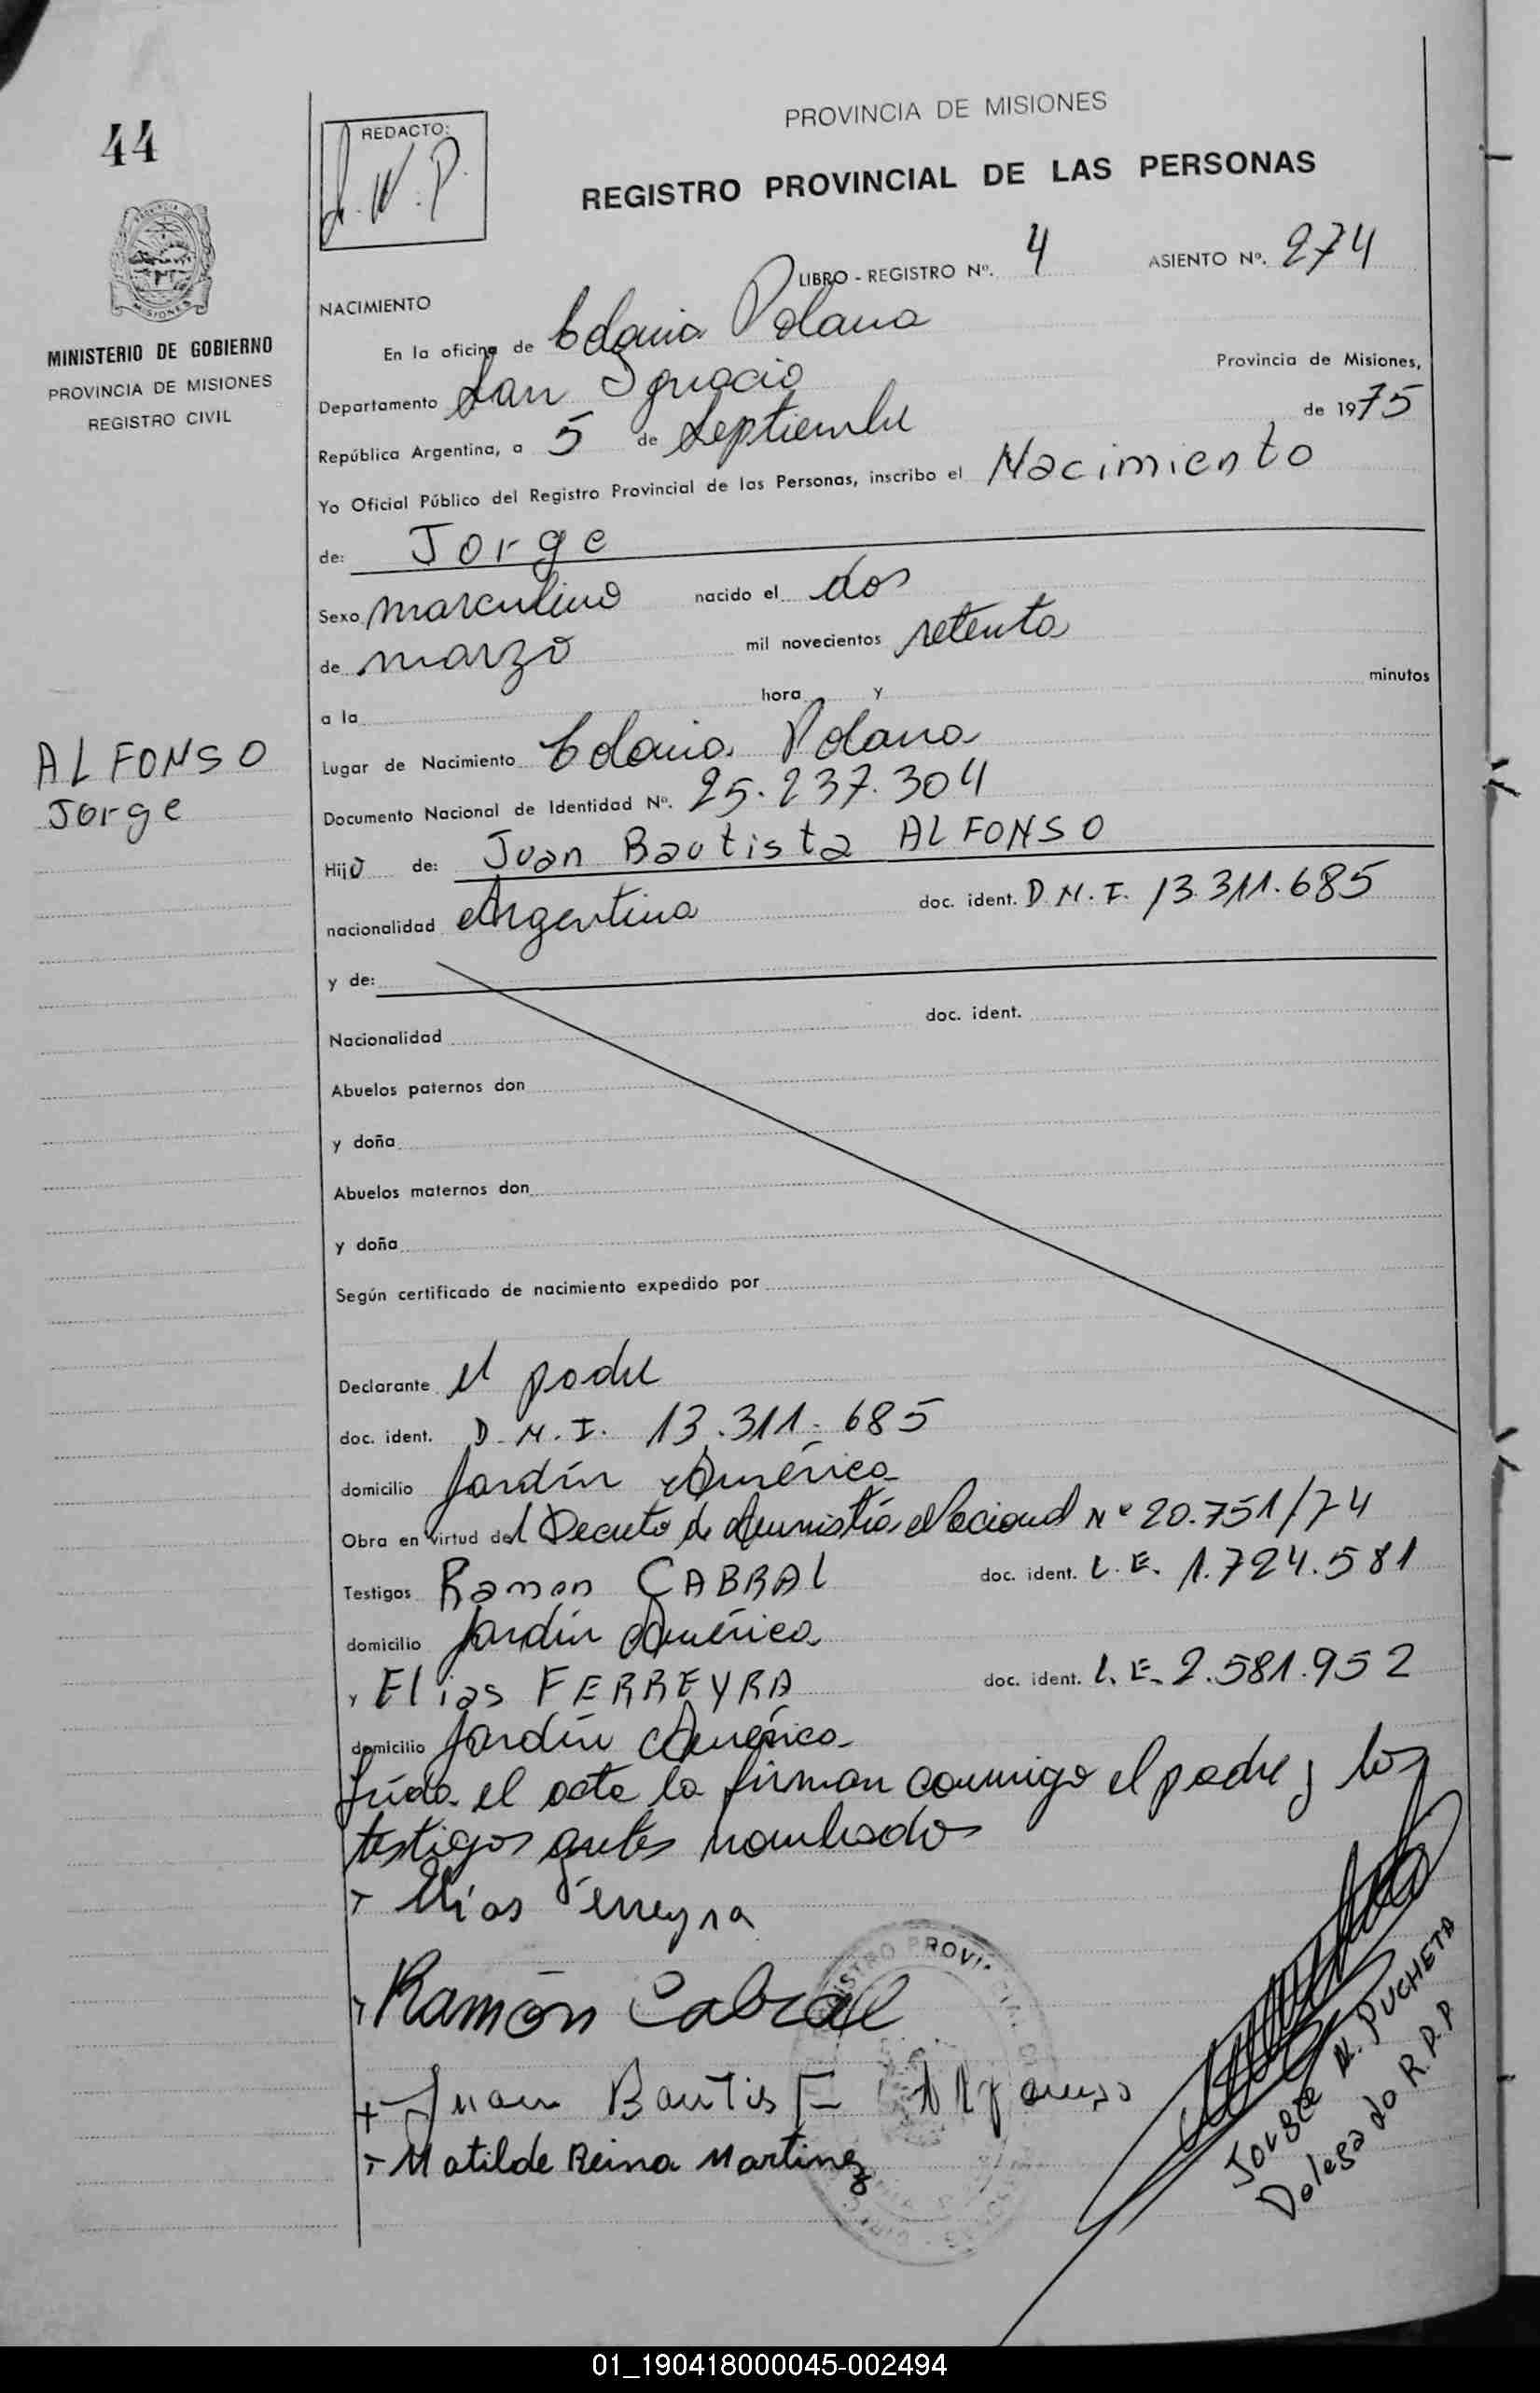 44
REDACTO:
J. W. P.
PROVINCIA DE MISIONES
REGISTRO PROVINCIAL DE LAS PERSONAS
LIBRO - REGISTRO Nº. 4 ASIENTO Nº. 274
MINISTERIO DE GOBIERNO
PROVINCIA DE MISIONES
REGISTRO CIVIL
NACIMIENTO
En la oficina de Colonia Polana
Departamento San Ignacio Provincia de Misiones,
República Argentina, a 5 de Septiembre de 1975
Yo Oficial Público del Registro Provincial de las Personas, inscribo el Nacimiento
de: Jorge
Sexo masculino nacido el dos
de marzo mil novecientos setenta
a la hora y minutos
ALFONSO
Jorge
Lugar de Nacimiento Colonia Polana
Documento Nacional de Identidad Nº. 25.237.304
Hijo de: Juan Bautista ALFONSO
nacionalidad Argentina doc. ident. D.N.I. 13.311.685
y de:
Nacionalidad doc. ident.
Abuelos paternos don
y doña
Abuelos maternos don
y doña
Según certificado de nacimiento expedido por
Declarante el padre
doc. ident. D.N.I. 13.311.685
domicilio Jardín América
Obra en virtud del Decreto de Amnistía Nacional Nº 20.751/74
Testigos Ramon CABRAL doc. ident. L.E. 1.724.581
domicilio Jardín América
y Elias FERREYRA doc. ident. L.E. 2.581.952
domicilio Jardín América
Leída el acta la firman conmigo el padre y los
testigos antes nombrados
Elías Ferreyra
Ramón Cabral
Juan Bautista Alfonso
Matilde Reina Martinez
Jorge N. PUCHETA
Delegado R.P.P
01_190418000045-002494